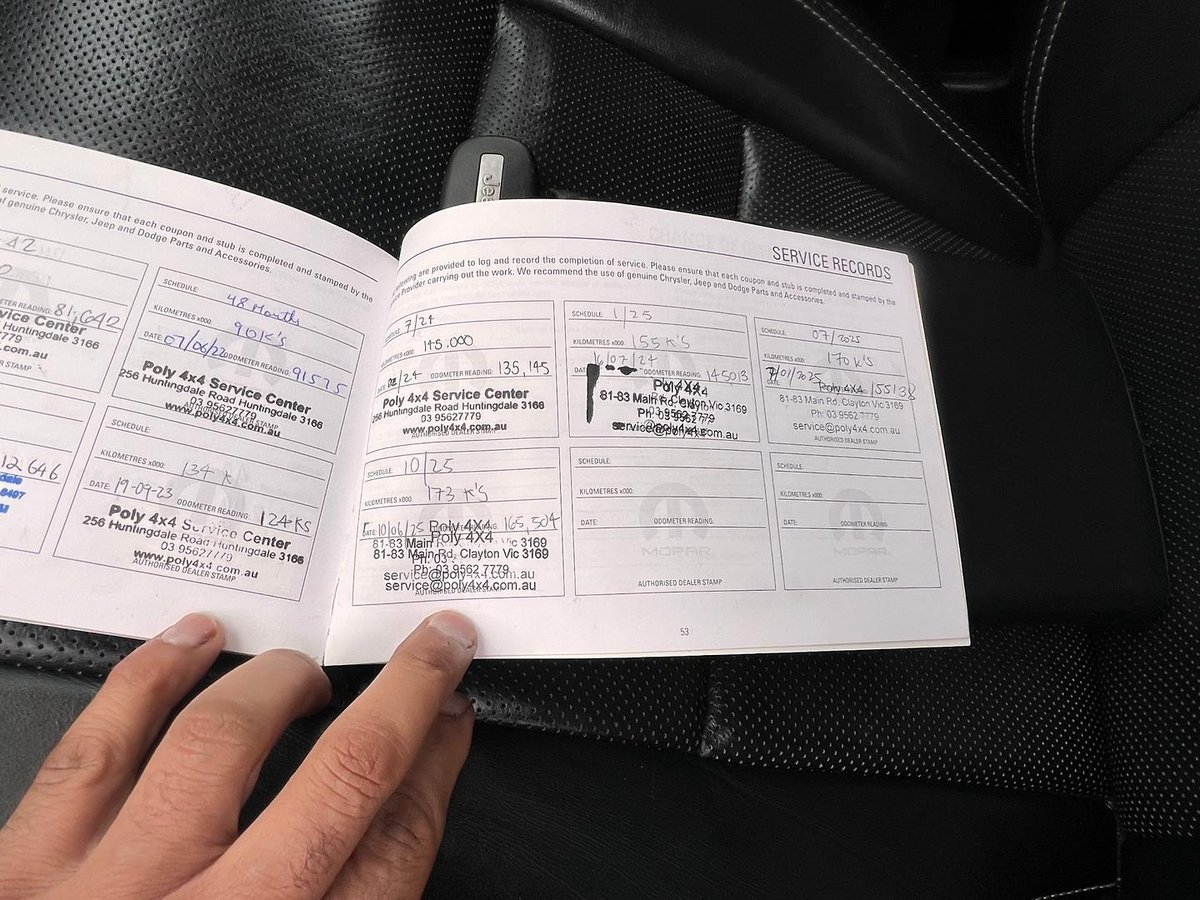 service. Please ensure that each coupon and stub is completed and stamped by the
of genuine Chrysler, Jeep and Dodge Parts and Accessories.
42
ODOMETER READING: 81,642
Service Center
3166
779
.com.au
STAMP
SCHEDULE: 48 Months
KILOMETRES x000: 90K's
DATE: 07/06/22 ODOMETER READING: 91525
Poly 4x4 Service Center
256 Huntingdale Road Huntingdale 3166
03 95627779
www.poly4x4.com.au
12 646
SCHEDULE:
KILOMETRES x000: 134 K
DATE: 19-09-23 ODOMETER READING: 124KS
Poly 4x4 Service Center
256 Huntingdale Road Huntingdale 3166
03 95627779
www.poly4x4.com.au
AUTHORISED DEALER STAMP
SERVICE RECORDS
following are provided to log and record the completion of service. Please ensure that each coupon and stub is completed and stamped by the
Provider carrying out the work. We recommend the use of genuine Chrysler, Jeep and Dodge Parts and Accessories.
SCHEDULE: 7/24
KILOMETRES x000: 145.000
/24 ODOMETER READING: 135,145
Poly 4x4 Service Center
256 Huntingdale Road Huntingdale 3166
03 95627779
www.poly4x4.com.au
SCHEDULE: 1/25
KILOMETRES x000: 155 K'S
16/07/24 145013
Poly 4X4
81-83 Main Rd, Clayton Vic 3169
Ph: 03 9562 7779
service@poly4x4.com.au
AUTHORISED DEALER STAMP
SCHEDULE: 07/2025
KILOMETRES x000: 170 K's
/01/2025 Poly 4X4 155138
81-83 Main Rd, Clayton Vic 3169
Ph: 03 9562 7779
service@poly4x4.com.au
AUTHORISED DEALER STAMP
SCHEDULE: 10/25
KILOMETRES x000: 173 K'S
DATE: 10/06/25 165,504
Poly 4X4
Poly 4X4
81-83 Main Rd, Clayton Vic 3169
81-83 Main Rd, Clayton Vic 3169
Ph: 03 9562 7779
service@poly4x4.com.au
service@poly4x4.com.au
AUTHORISED DEALER STAMP
SCHEDULE:
KILOMETRES x000:
DATE: ODOMETER READING:
MOPAR
AUTHORISED DEALER STAMP
SCHEDULE:
KILOMETRES x000:
DATE: ODOMETER READING:
MOPAR
AUTHORISED DEALER STAMP
53